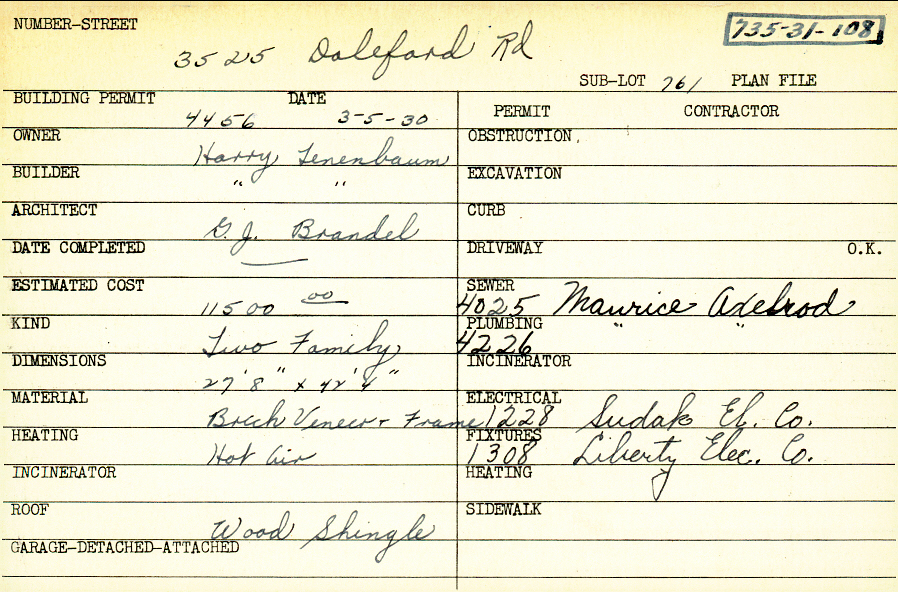 NUMBER-STREET 735-31-108
3525 Daleford Rd
SUB-LOT 761 PLAN FILE
BUILDING PERMIT DATE PERMIT CONTRACTOR
4456 3-5-30
OWNER OBSTRUCTION
Harry Tenenbaum
BUILDER EXCAVATION
" "
ARCHITECT CURB
G.J. Brandel
DATE COMPLETED DRIVEWAY O.K.
ESTIMATED COST SEWER
11500 00 4025 Maurice Axelrod
KIND PLUMBING " "
Two Family 4226
DIMENSIONS INCINERATOR
27'8" x 42'4"
MATERIAL ELECTRICAL
Brick Veneer + Frame 1228 Sudak El. Co.
HEATING FIXTURES
Hot Air 1308 Liberty Elec. Co.
INCINERATOR HEATING
ROOF SIDEWALK
Wood Shingle
GARAGE-DETACHED-ATTACHED